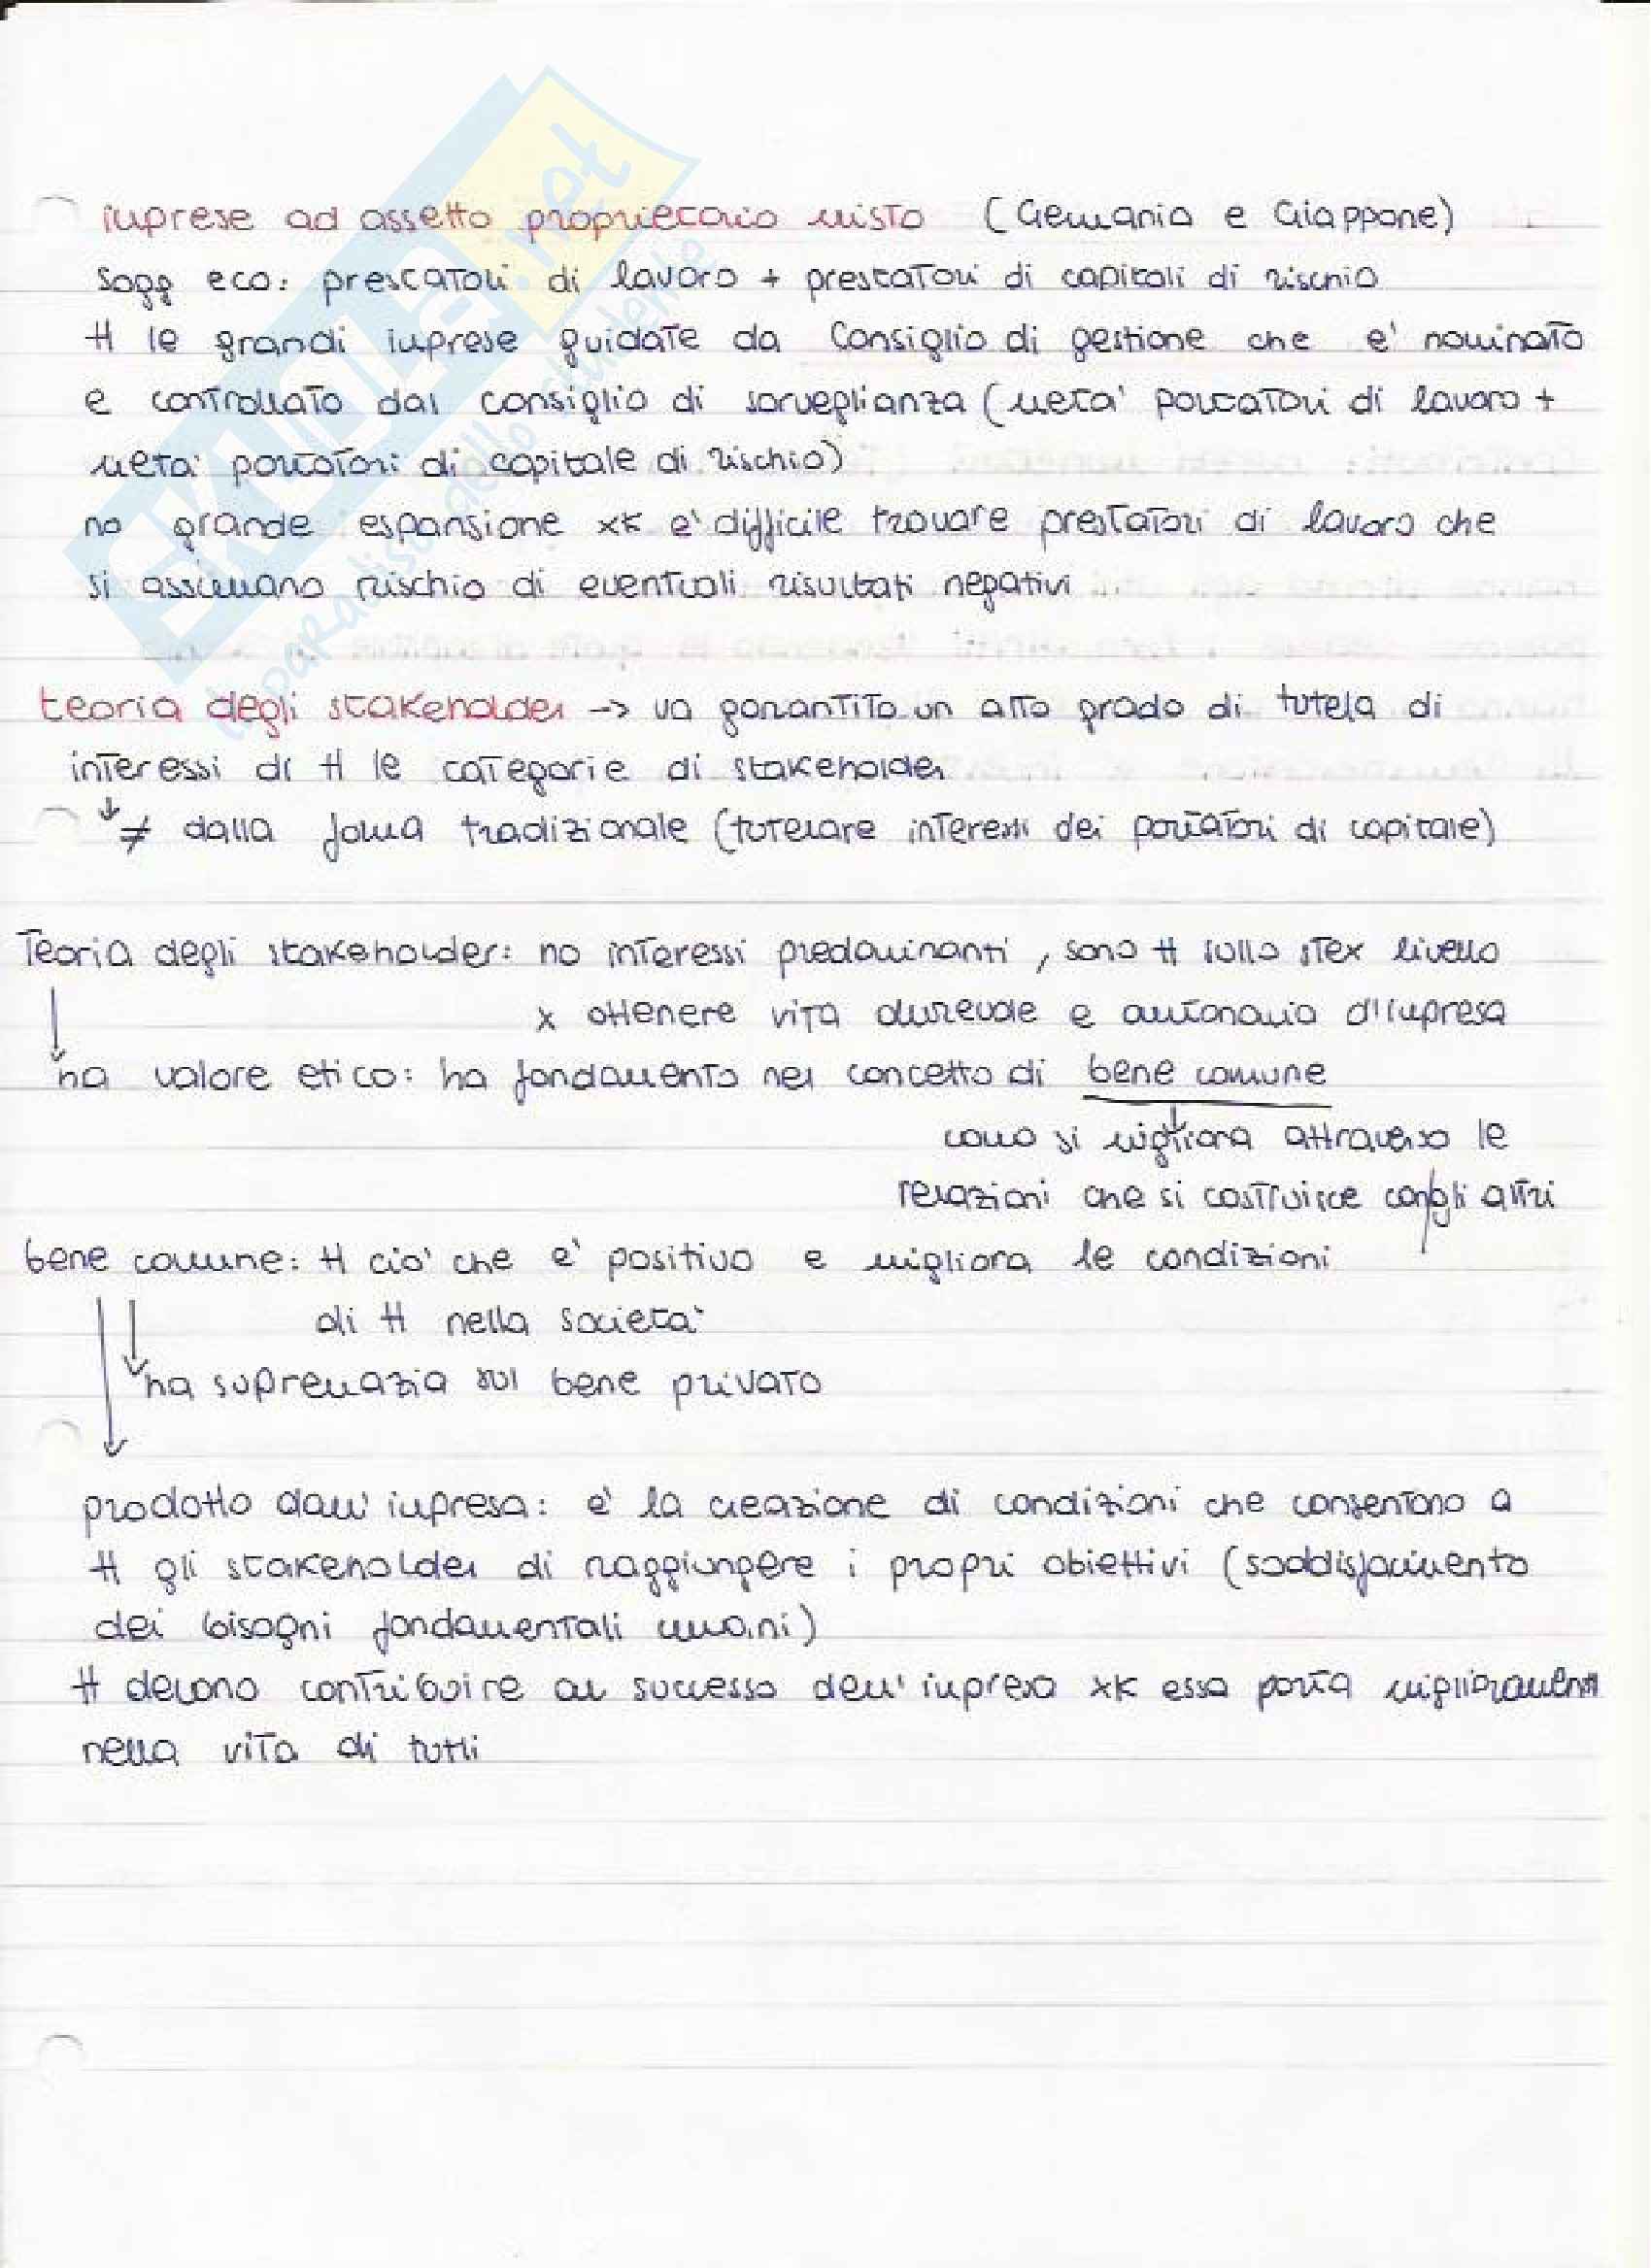 imprese ad assetto proprietario misto (Germania e Giappone)
sogg eco: prestatori di lavoro + prestatori di capitali di rischio
tt le grandi imprese guidate da Consiglio di gestione che e' nominato
e controllato dal consiglio di sorveglianza (metà portatori di lavoro +
metà portatori di capitale di rischio)
no grande espansione xk e' difficile trovare prestatori di lavoro che
si assumano rischio di eventuali risultati negativi
teoria degli stakeholder -> va garantito un alto grado di tutela di
interessi di tt le categorie di stakeholder
↓ ≠ dalla forma tradizionale (tutelare interessi dei portatori di capitale)
Teoria degli stakeholder: no interessi predominanti, sono tt sullo stex livello
x ottenere vita durevole e autonomia d'impresa
↓ ha valore etico: ha fondamento nel concetto di bene comune
uomo si migliora attraverso le
relazioni che si costruisce con gli altri
bene comune: tt ciò che e' positivo e migliora le condizioni
di tt nella società
↓ ha supremazia sul bene privato
↓
prodotto dall'impresa: e' la creazione di condizioni che consentono a
tt gli stakeholder di raggiungere i propri obiettivi (soddisfacimento
dei bisogni fondamentali umani)
tt devono contribuire al successo dell'impresa xk essa porta miglioramenti
nella vita di tutti
SKUOLA.net
il paradiso dello studente